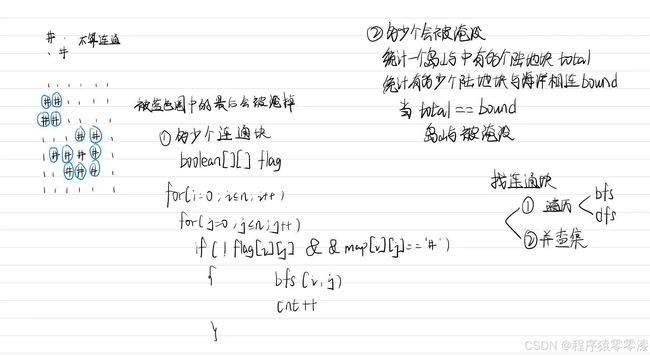 # .
. # 不算连通
. . . . . . .
# # . . . . .
# # . . . . .
. . . . # # .
. # # # # .
. . # # # .
. . . . . . .
被蓝色圈中的最后会被淹掉
① 多少个连通块
boolean[][] flag
for(i=0; i≤n; i++)
for(j=0; j≤n; j++)
if(! flag[i][j] && map[i][j]=='#')
{ bfs(i,j)
cnt++
}
② 多少个会被淹没
统计一个岛屿中有多个陆地块 total
统计有多少个陆地块与海洋相连 bound
当 total == bound
岛屿被淹没
找连通块
① 遍历 bfs
dfs
② 并查集
CSDN @程序猿零零漆